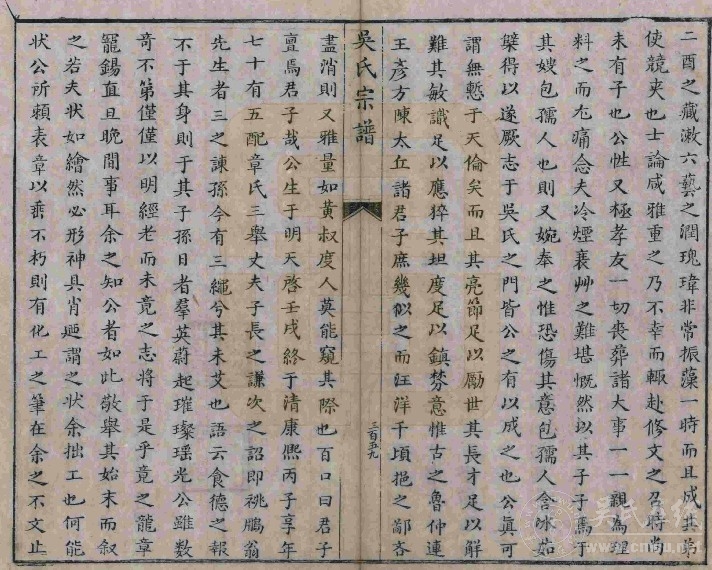 二酉之藏漱六藝之潤瑰瑋非常振藻一時而且成其弟
使競爽也士論咸雅重之乃不幸而輙赴修文之召時尚
未有子也公性又極孝友一切喪葬諸大事一一親為理
料之而尤痛念夫冷煙衰艸之難堪慨然以其子子焉于
其嫂包孺人也則又婉奉之惟恐傷其意包孺人含冰如
檗得以遂厥志于吳氏之門皆公之有以成之也公真可
謂無慙于天倫矣而且其亮節足以勵世其長才足以解
難其敏識足以應猝其坦度足以鎮棼意惟古之魯仲連
王彥方陳太丘諸君子庶幾似之而汪洋千頃挹之鄙吝
吳氏宗譜
三百五九
盡消則又雅量如黃叔度人莫能窺其際也百口曰君子
亶焉君子哉公生于明天啓壬戌終于清康熙丙子享年
七十有五配章氏三舉丈夫子長之謙次之詔即祧鵬翁
先生者三之諫孫今有三繩兮其未艾也語云食德之報
不于其身則于其子孫日者羣英蔚起璀璨瑤光公雖數
奇不第僅僅以明經老而未竟之志將于是乎竟之龍章
寵錫直旦晚間事耳余之知公者如此敬舉其始末而叙
之若夫狀如繪然必形神具肖廼謂之狀余拙工也何能
狀公所頼表章以乖不朽則有化工之筆在余之不文止
吳氏在线